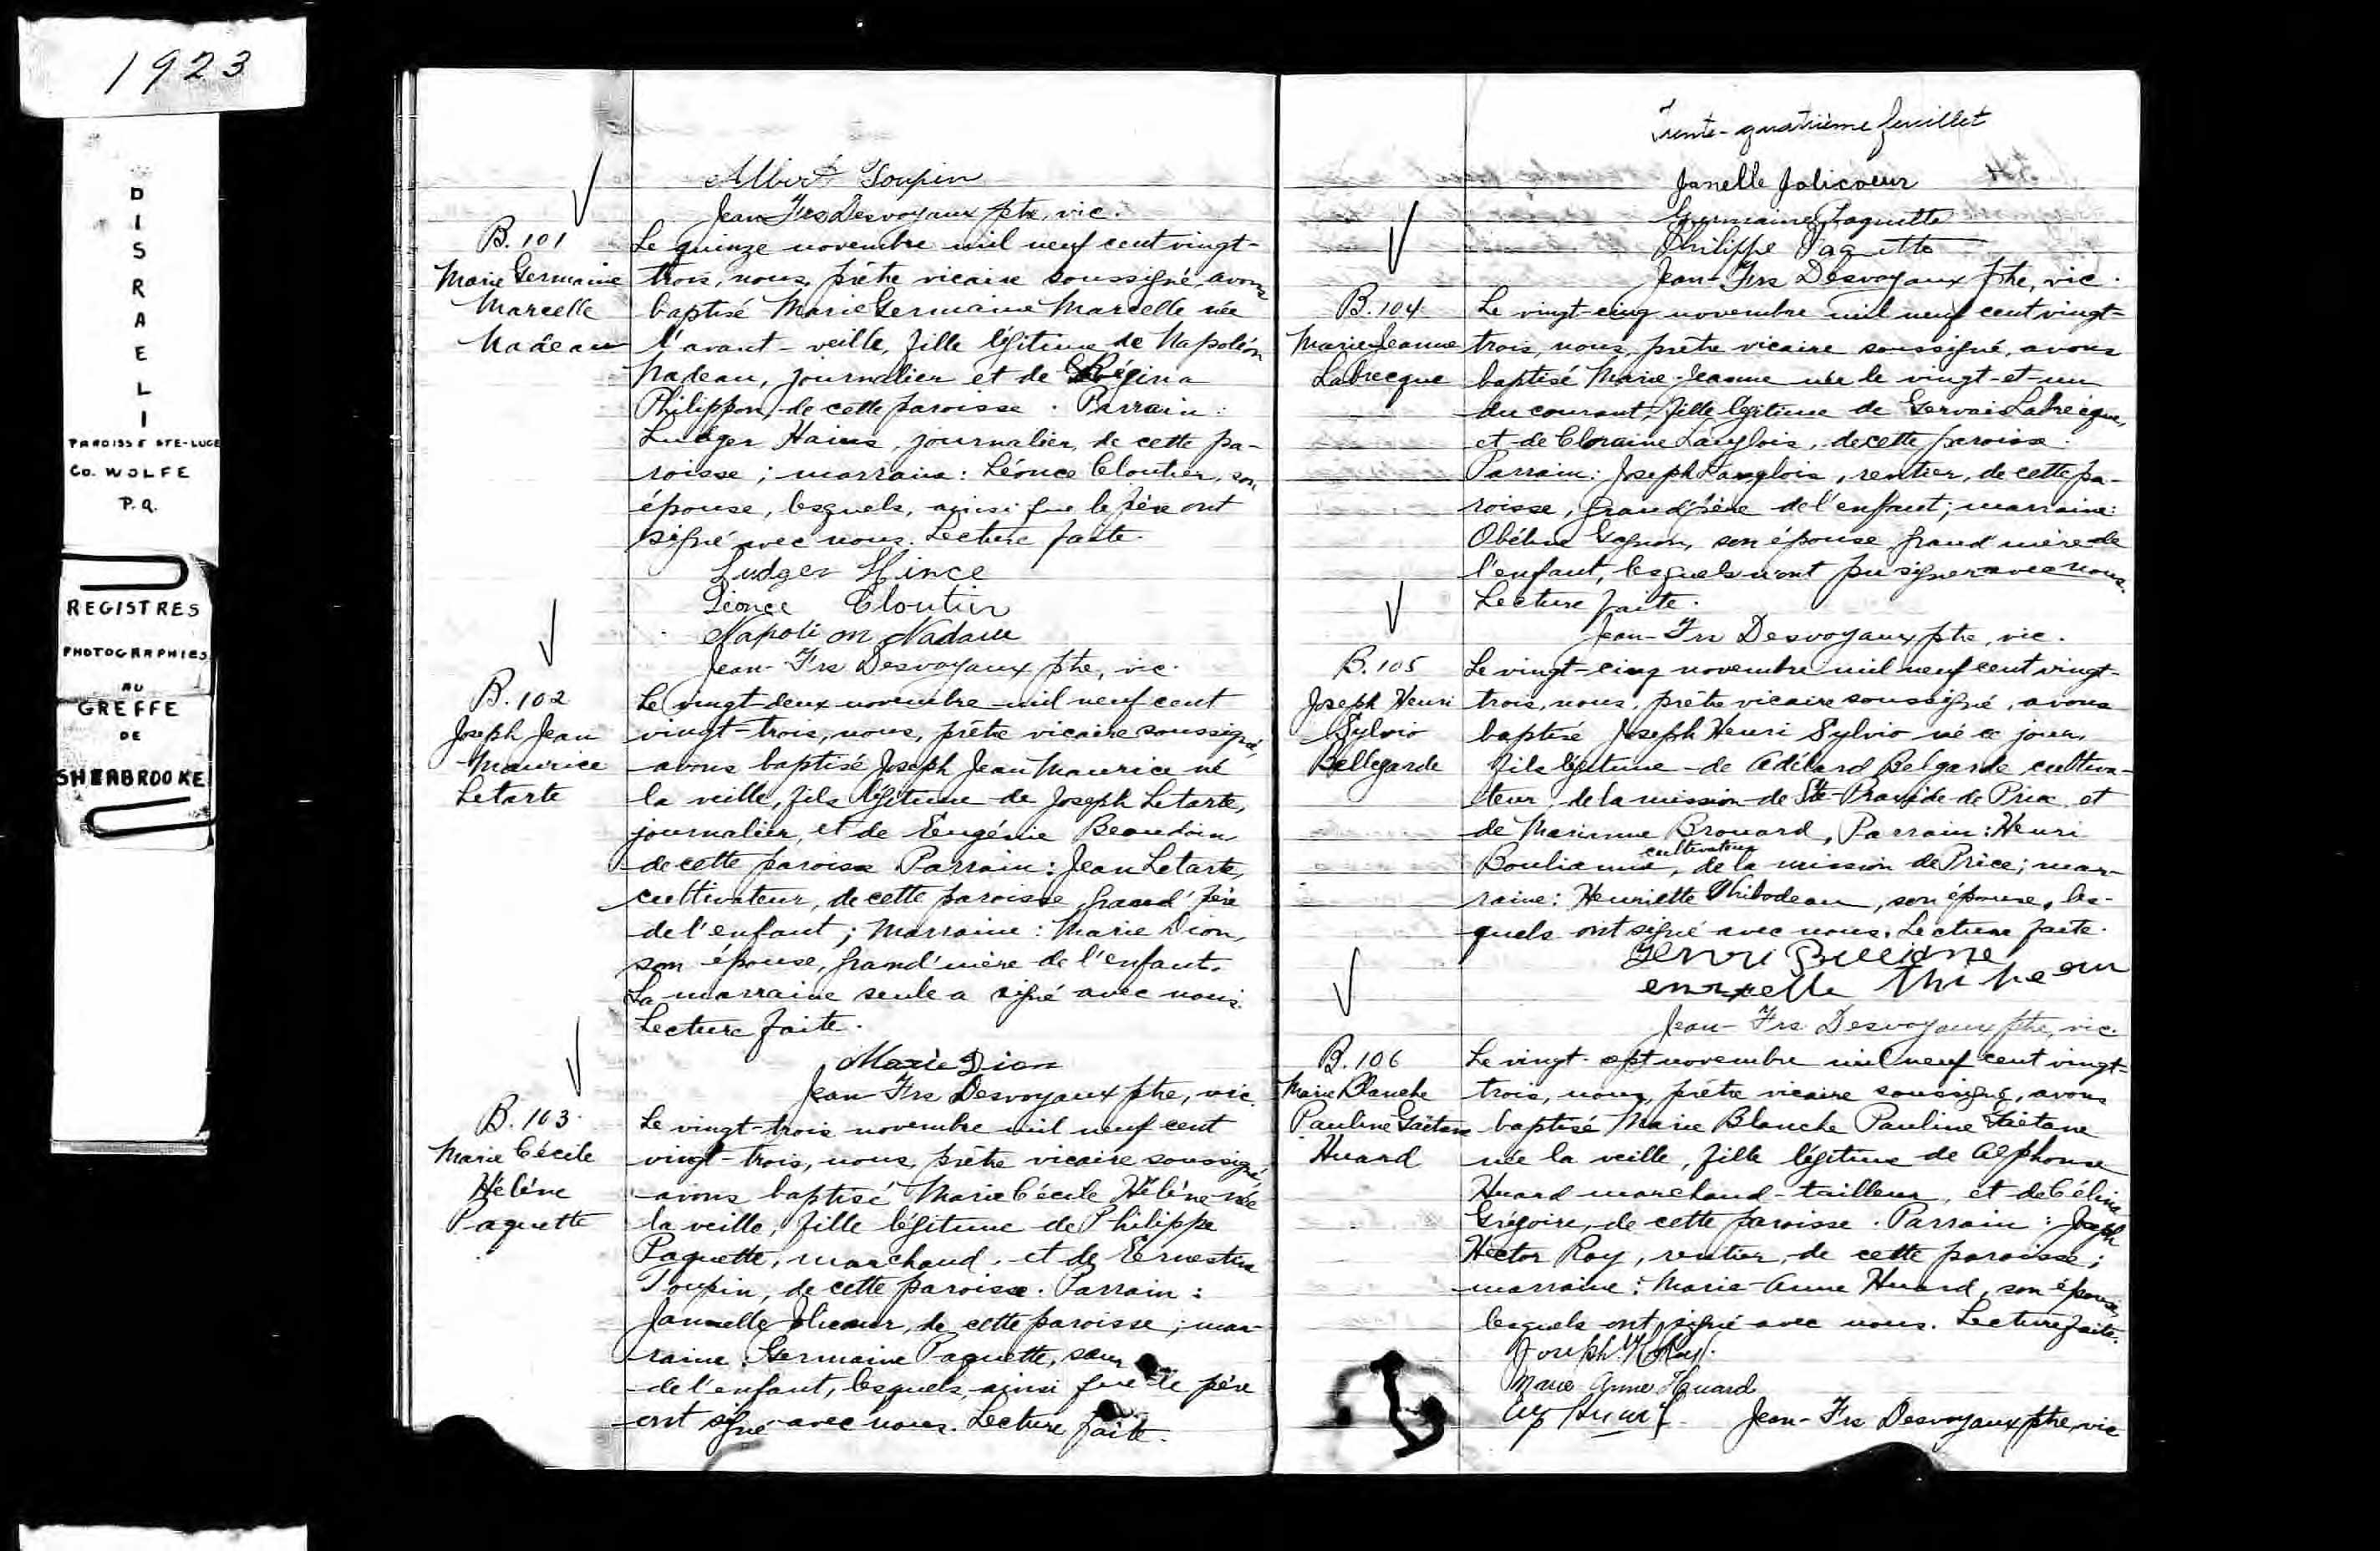 1923
DISRAELI
PAROISSE STE-LUCE
Co. WOLFE
P.Q.
REGISTRES
PHOTOGRAPHIES
AU
GREFFE
DE
SHERBROOKE
Albert Toupin
Jean-Frs Desvoyaux ptre, vic.
B. 101
Marie Germaine
Marcelle
Nadeau
Le quinze novembre mil neuf cent vingt-
trois, nous, prêtre vicaire soussigné, avons
baptisé Marie Germaine Marcelle née
l'avant-veille, fille légitime de Napoléon
Nadeau, journalier et de Régina
Philippon, de cette paroisse. Parrain:
Ludger Hains, journalier, de cette pa-
roisse; marraine: Léonce Cloutier, son
épouse, lesquels, ainsi que le père ont
signé avec nous. Lecture faite.
Ludger Hince
Léonce Cloutier
Napoleon Nadeau
Jean-Frs Desvoyaux ptre, vic.
B. 102
Joseph Jean
Maurice
Letarte
Le vingt-deux novembre mil neuf cent
vingt-trois, nous, prêtre vicaire soussigné,
avons baptisé Joseph Jean Maurice né
la veille, fils légitime de Joseph Letarte,
journalier, et de Eugénie Beaudoin,
de cette paroisse Parrain: Jean Letarte,
cultivateur, de cette paroisse, grand'père
de l'enfant; Marraine: Marie Dion,
son épouse, grand'mère de l'enfant.
La marraine seule a signé avec nous.
Lecture faite.
Marie Dion
Jean-Frs Desvoyaux ptre, vic.
B. 103
Marie Cécile
Hélène
Paquette
Le vingt-trois novembre mil neuf cent
vingt-trois, nous, prêtre vicaire soussigné,
avons baptisé Marie Cécile Hélène née
la veille, fille légitime de Philippe
Paquette, marchand, et de Ernestine
Toupin, de cette paroisse. Parrain:
Jannelle Jolicoeur, de cette paroisse; mar-
raine: Germaine Paquette, soeur
de l'enfant, lesquels, ainsi que le père
ont signé avec nous. Lecture faite.
Trente-quatrième feuillet
Janelle Jolicoeur
Germaine Paquette
Philippe Paquette
Jean-Frs Desvoyaux ptre, vic.
B. 104
Marie-Jeanne
Labrecque
Le vingt-cinq novembre mil neuf cent vingt-
trois, nous, prêtre vicaire soussigné, avons
baptisé Marie-Jeanne née le vingt-et-un
du courant, fille légitime de Gervais Labrecque,
et de Cloraine Langlois, de cette paroisse.
Parrain: Joseph Langlois, rentier, de cette pa-
roisse, grand'père de l'enfant; marraine:
Obéline Gagnon, son épouse, grand'mère de
l'enfant, lesquels n'ont pu signer avec nous.
Lecture faite.
Jean-Frs Desvoyaux ptre, vic.
B. 105
Joseph Henri
Sylvio
Bellegarde
Le vingt-cinq novembre mil neuf cent vingt-
trois, nous, prêtre vicaire soussigné, avons
baptisé Joseph Henri Sylvio né ce jour,
fils légitime de Adélard Belgarde cultiva-
teur, de la mission de Ste-Praxède de Price, et
de Marianne Brouard, Parrain: Henri
Boulianne, cultivateur, de la mission de Price; mar-
raine: Henriette Thibodeau, son épouse, les-
quels ont signé avec nous. Lecture faite.
Henri
Jean-Frs Desvoyaux ptre, vic.
B. 106
Marie Blanche
Pauline Gaëtane
Huard
Le vingt-sept novembre mil neuf cent vingt-
trois, nous, prêtre vicaire soussigné, avons
baptisé Marie Blanche Pauline Gaëtane
née la veille, fille légitime de Alphonse
Huard marchand-tailleur, et de Célina
Grégoire, de cette paroisse. Parrain: Joseph
Hector Roy, rentier, de cette paroisse;
marraine: Marie-Anne Huard, son épouse,
lesquels ont signé avec nous. Lecture faite.
Joseph H. Roy.
Marie Anne Huard
Alp Huard
Jean-Frs Desvoyaux ptre, vic